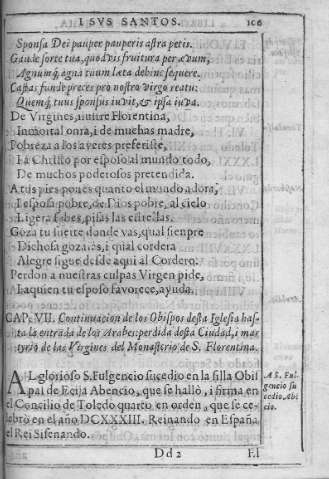 I SVS SANTOS. 106
Sponsa Dei pauper pauperis astra petis.
Gaude sorte tua, quod vis fruitura per ævum,
Agnumq́, agna tuum læta dehinc sequere.
Castas funde preces pro nostro virgo reatu:
Quemq́, tuus sponsus iuvit, & ipsa iuva.
De Virgines, nuestre Florentina,
Inmortal onra, i de muchas madre,
Pobreza a los averes preferiste,
I a Christo por esposo al mundo todo,
De muchos poderosos pretendida.
A tus pies pones quanto el mundo adora,
I esposa pobre, de Dios pobre, al cielo
Ligera subes, pisas las estrellas.
Goza tu suerte donde vas, qual sienpre
Dichosa gozarás, i qual cordera
Alegre sigue desde aqui al Cordero.
Perdon a nuestras culpas Virgen pide,
I a quien tu esposo favorece, ayuda.
CAP. VII. Continuacion de los Obispos desta Iglesia has-
ta la entrada de los Arabes: perdida desta Ciudad, i mar
tyrio de las Virgines del Monasterio de S. Florentina.
AL glorioso S. Fulgencio sucedio en la silla Obis
pal de Ecija Abencio, que se halló, i firma en
el Concilio de Toledo quarto en orden, que se ce-
lebró en el año DCXXXIII. Reinando en España
el Rei Sisenando.
A S. Ful-
gencio su
cedio Abē
cio.
Dd 2 El